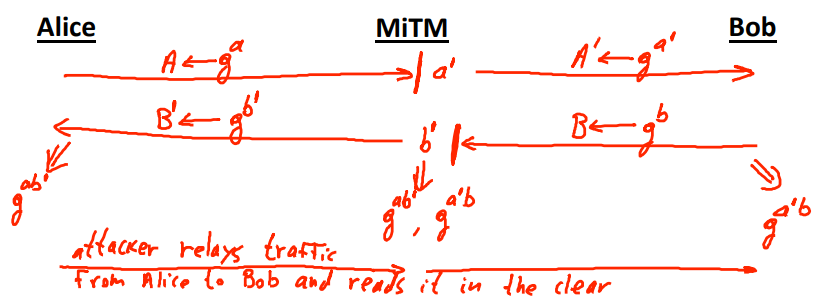 Alice MiTM Bob
A ← g^a A' ← g^a'
a'
B' ← g^b' B ← g^b
b'
g^ab' g^ab' , g^a'b g^a'b
attacker relays traffic
from Alice to Bob and reads it in the clear